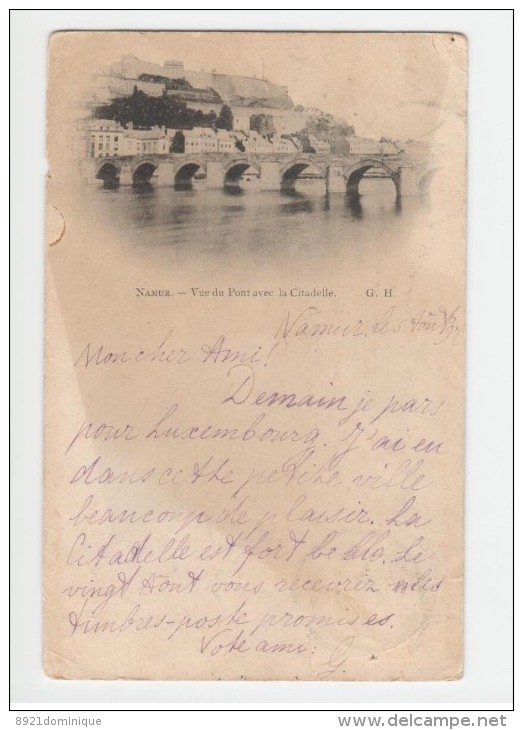 NAMUR. — Vue du Pont avec la Citadelle. G. H.
Namur, le 5 Août
Mon cher Ami!
Demain je pars
pour Luxembourg. J'ai eu
dans cette petite ville
beaucoup de plaisir. La
Citadelle est fort belle. Le
vingt Août vous recevrez les
timbres-poste promises.
Vote ami:
G.
8921dominique
www.delcampe.net